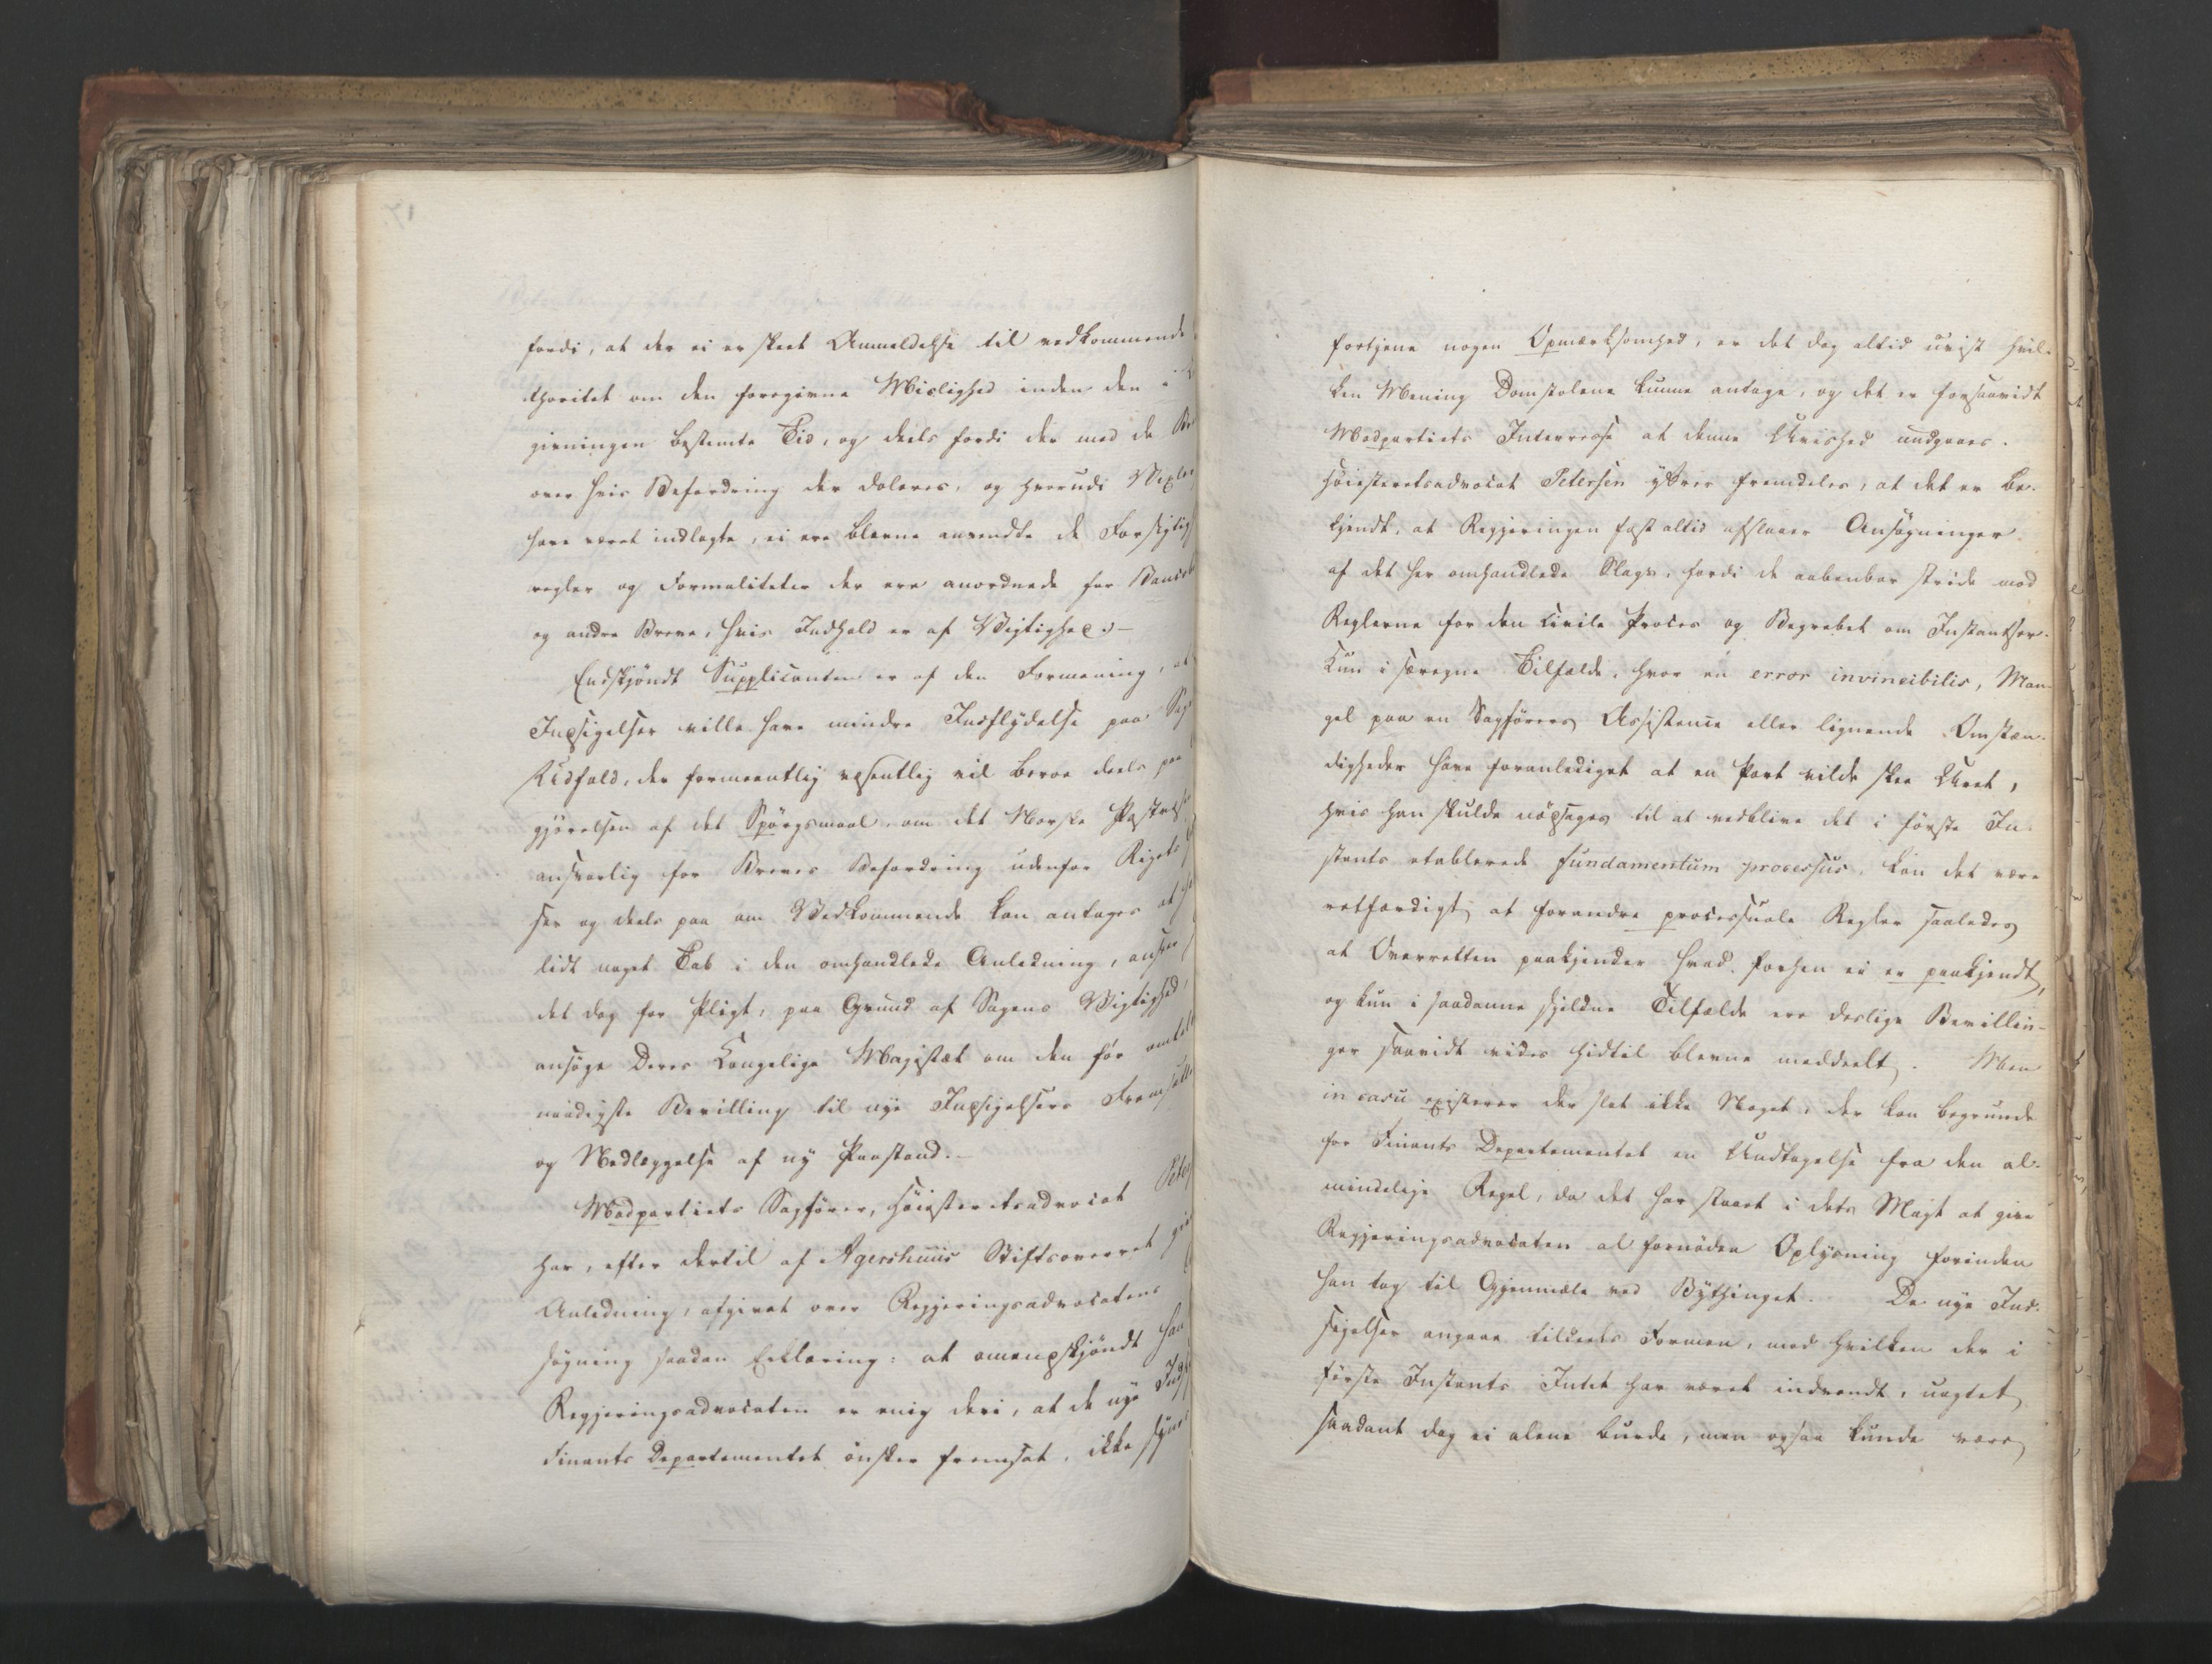 fordi, at der ei er skeet Anmeldelse til vedkommende
thoritet om den foregivne Mislighed inden den i
givningen bestemte Tid, og deels fordi der med de
over hvis Befordring der doleres, og hvorudi
have været indlagte, ei ere blevne anvendte de Forsigtig
regler og Formaliteter der ere anordnede for
og andre Breve, hvis Indhold er af Vigtighed.-
Endskjöndt Supplicanten er af den Formening, at
Indsigelser ville have mindre Indflydelse paa Sag
Udfald, der formeentlig væsentlig vil beroe deels paa
gjörelsen af det Spörgsmaal om det Norske Postvæsen
ansvarlig for Breves Befordring udenfor Rigets
ser og deels paa om Vedkommende kan antages at
lidt noget Tab i den omhandlede Anledning, anseer
det dog for Pligt, paa Grund af Sagens Vigtighed,
ansöge Deres Kongelige Majestæt om den för omtalte
naadigste Bevilling til nye Indsigelsers Fremsættelse
og Nedlæggelse af ny Paastand.-
Modpartiets Sagförer, Höiesteretsadvocat Peter
har, efter dertil af Agershuus Stiftsoverret given
Anledning, afgivet over Regjeringsadvocatens
sögning saadan Erklæring: at omendskjöndt han
Regjeringsadvocaten er enig deri, at de nye Inds
Finants Departementet önsker fremsat, ikke synes
fortjene nogen Opmærksomhed, er det dog altid uvist hvil-
ken Mening Domstolene kunne antage, og det er forsaavidt
Modpartiets Interesse at denne Uvished undgaaes.
Höiesteretsadvocat Petersen yttrer fremdeles, at det er be-
kjendt, at Regjeringen fast altid afslaaer Ansögninger
af det her omhandlede Slags, fordi de aabenbar stride mod
Reglerne for den civile Proces og Begrebet om Instantser.
Kun i særegne Tilfælde, hvor en error invincibilis, Man-
gel paa en Sagförers Assistence eller lignende Omstæn-
digheder have foranlediget at en Part vilde skee Uret,
hvis han skulde nödsages til at vedblive det i förste In-
stants etablerede fundamentum processus, kan det være
retfærdigt at forandre processuale Regler saaledes
at Overretten paakjender hvad forhen ei er paakjendt,
og kun i saadanne sjeldne Tilfælde ere deslige Bevillin-
ger saavidt vides hidtil blevne meddeelt. Men
in casu existerer der slet ikke Noget, der kan begrunde
for Finants Departementet en Undtagelse fra den al-
mindelige Regel, da det har staaet i dets Magt at give
Regjeringsadvocaten al fornöden Oplysning forinden
han tog til Gjenmæle ved Bythinget. De nye Ind-
sigelser angaae tildeels Formen, mod hvilken der i
förste Instants Intet har været indvendt, uagtet
saadant dog ei alene burde, men ogsaa kunde være